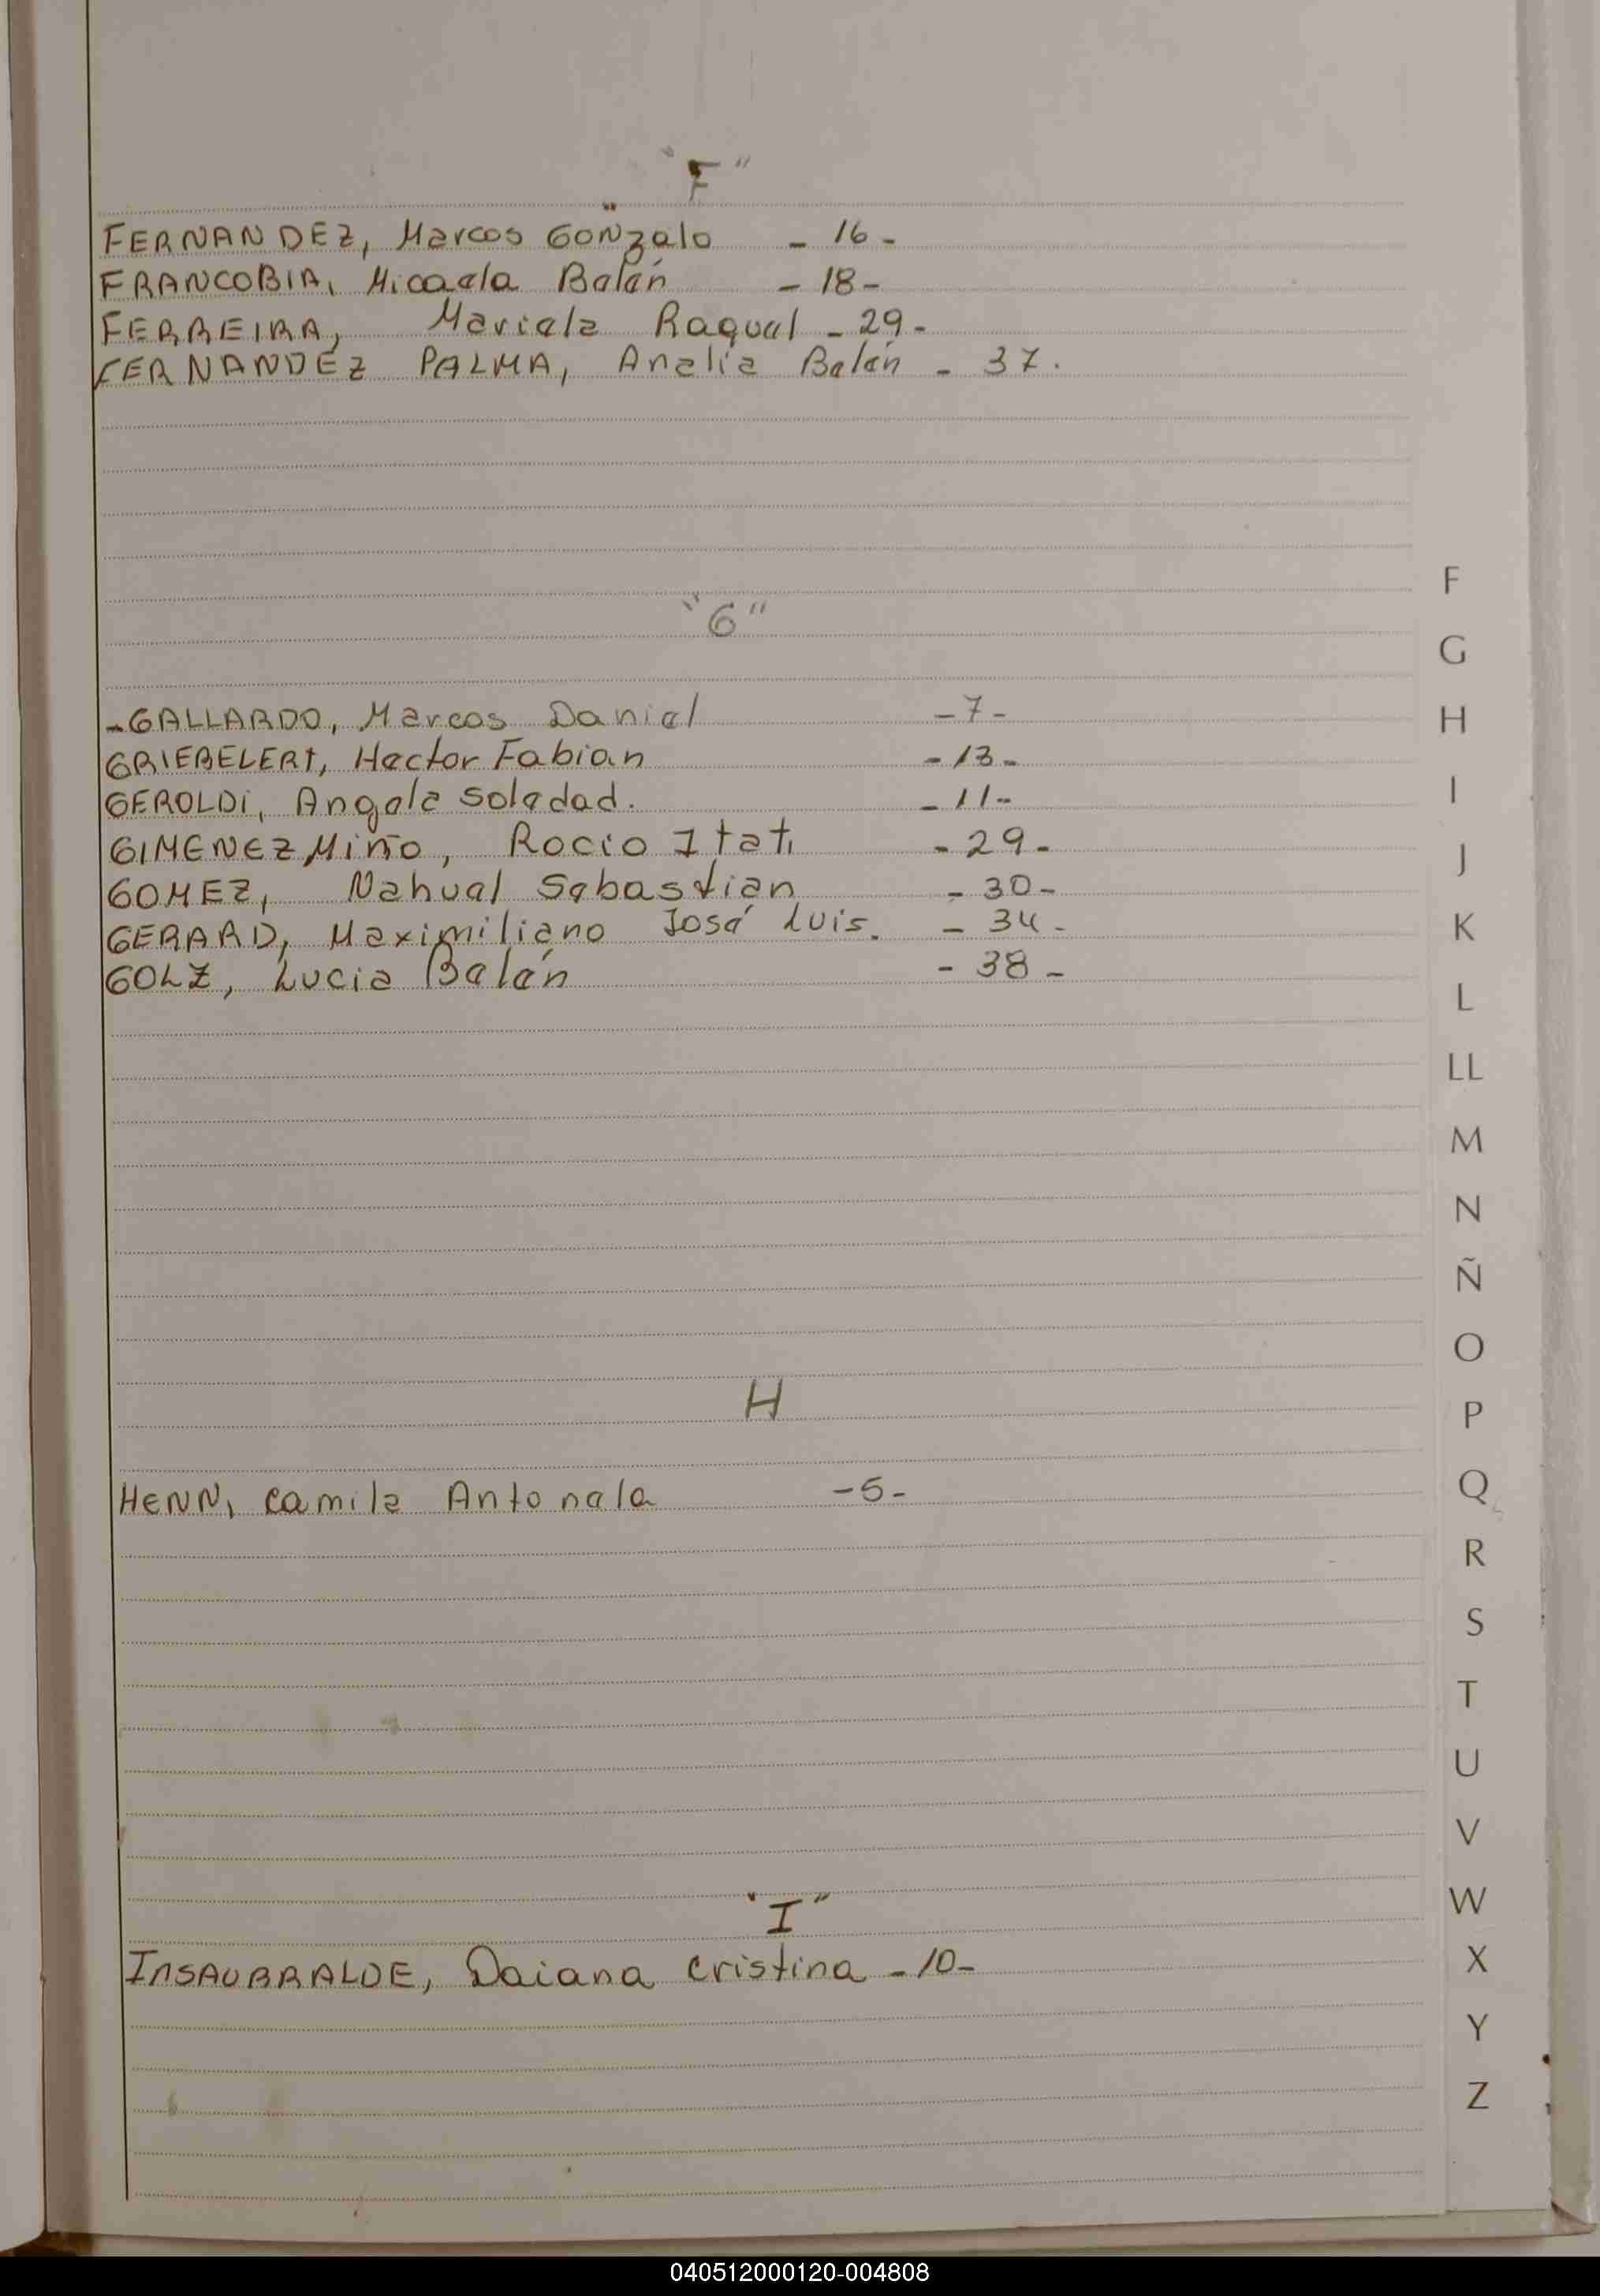 "F"
FERNANDEZ, Marcos Gonzalo - 16 -
FRANCOBIA, Micaela Belén - 18 -
FERREIRA, Mariela Raquel - 29 -
FERNANDEZ PALMA, Analia Belén - 37.
"G"
- GALLARDO, Marcos Daniel - 7 -
GRIEBELERt, Hector Fabian - 13 -
GEROLDi, Angela Soledad. - 11 -
GIMENEZ Miño, Rocio Itati - 29 -
GOMEZ, Nahuel Sebastian - 30 -
GERARD, Maximiliano José Luis. - 34 -
GOLZ, Lucia Belén - 38 -
H
HENN, Camila Antonela - 5 -
"I"
INSAURRALDE, Daiana Cristina - 10 -
F
G
H
I
J
K
L
LL
M
N
Ñ
O
P
Q
R
S
T
U
V
W
X
Y
Z
040512000120-004808